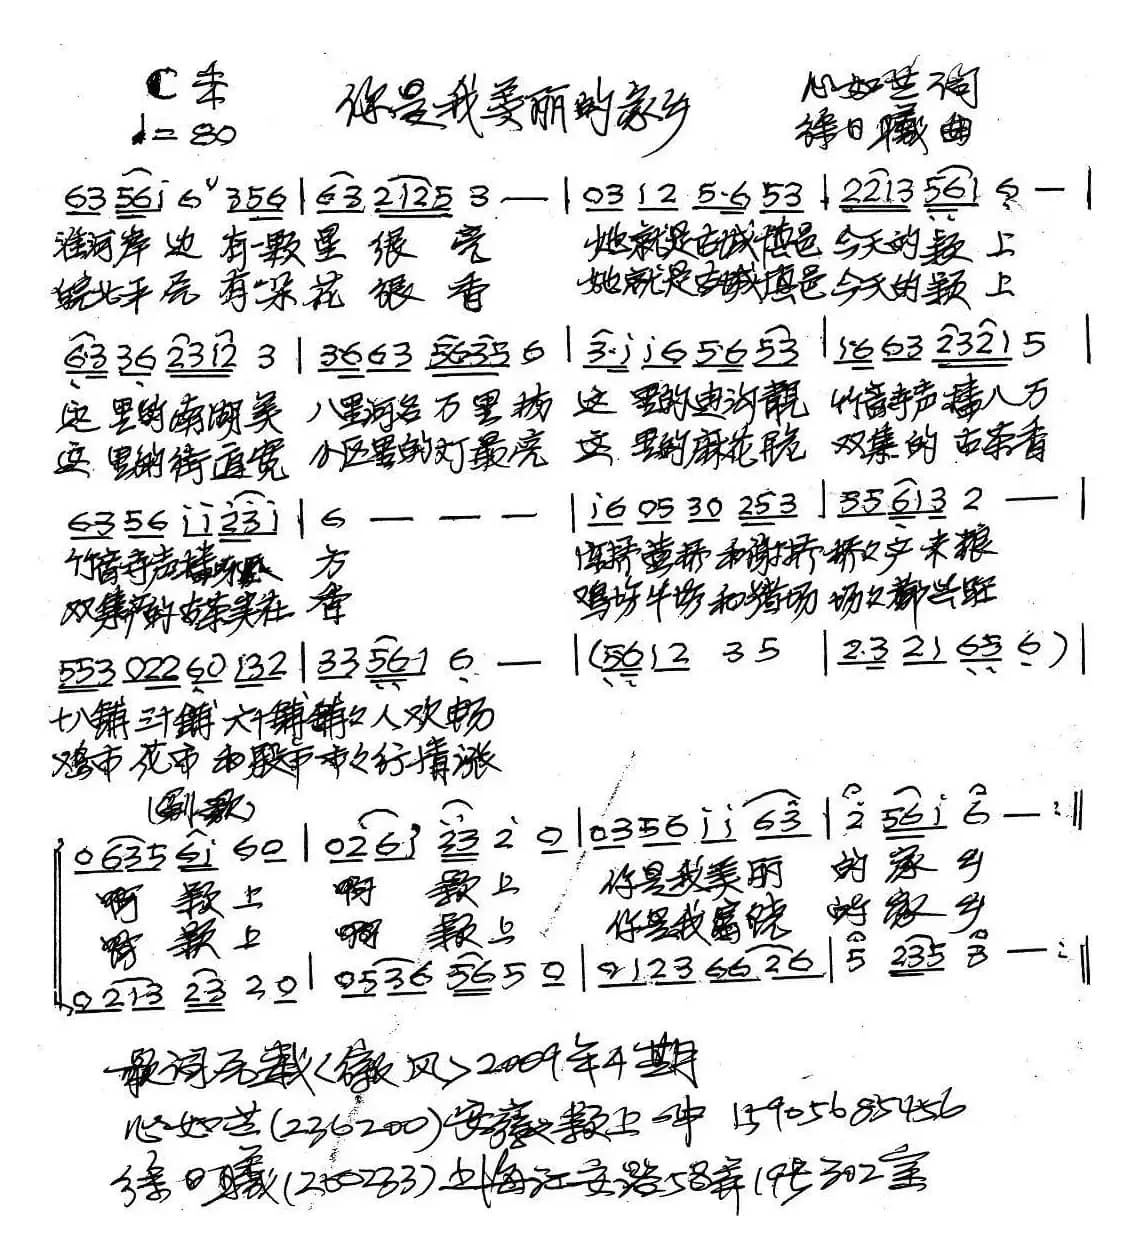 C 4/4
♩=80
你是我美丽的家乡
心如芷 词
徐日曦 曲
63 561 6 ˅ 356 | 63 2125 3 — | 03 12 5·6 53 | 2213 561 6 — |
淮河岸边 有一颗星 很 亮 她就是古城慎邑 今天的颍 上
皖北平原 有一朵花 很 香 她就是古城慎邑 今天的颍 上
6·3 36 2312 3 | 3·6 63 5635 6 | 3·1 16 5·6 53 | 1·6 63 2321 5 |
这 里的南湖美 八里河名万里扬 这 里的迪沟靓 竹音寺声播八方
这 里的街道宽 小区里的灯最亮 这 里的麻花脆 双集的 古茶香
63 56 11 231 | 6 — — — | 16 05 30 253 | 35 613 2 — |
竹音寺声播 方 和谢桥 桥々产米粮
双集的古茶实在 香 鸡场牛场和猪场 场々都兴旺
553 022 60 132 | 33 561 6 — | (5612 35 | 2·3 21 65 6) |
十八铺 三十铺 六十铺 铺々人欢畅
鸡市 花市 和股市 市々行情涨
(副歌)
0635 61 60 | 026 1 23 2 0 | 0356 11 63 | 2 561 6 — :‖
啊 颍上 啊 颍上 你是我美丽 的 家 乡
啊 颍上 啊 颍上 你是我富饶 的 家 乡
0213 23 20 | 0536 56 5 0 | 0123 66 26 | 5 235 3 — :‖
歌词原载〈徽风〉2009年4期
心如芷(236200)安徽颍上一中 15905685456
徐日曦(200233)上海江安路58弄19号302室